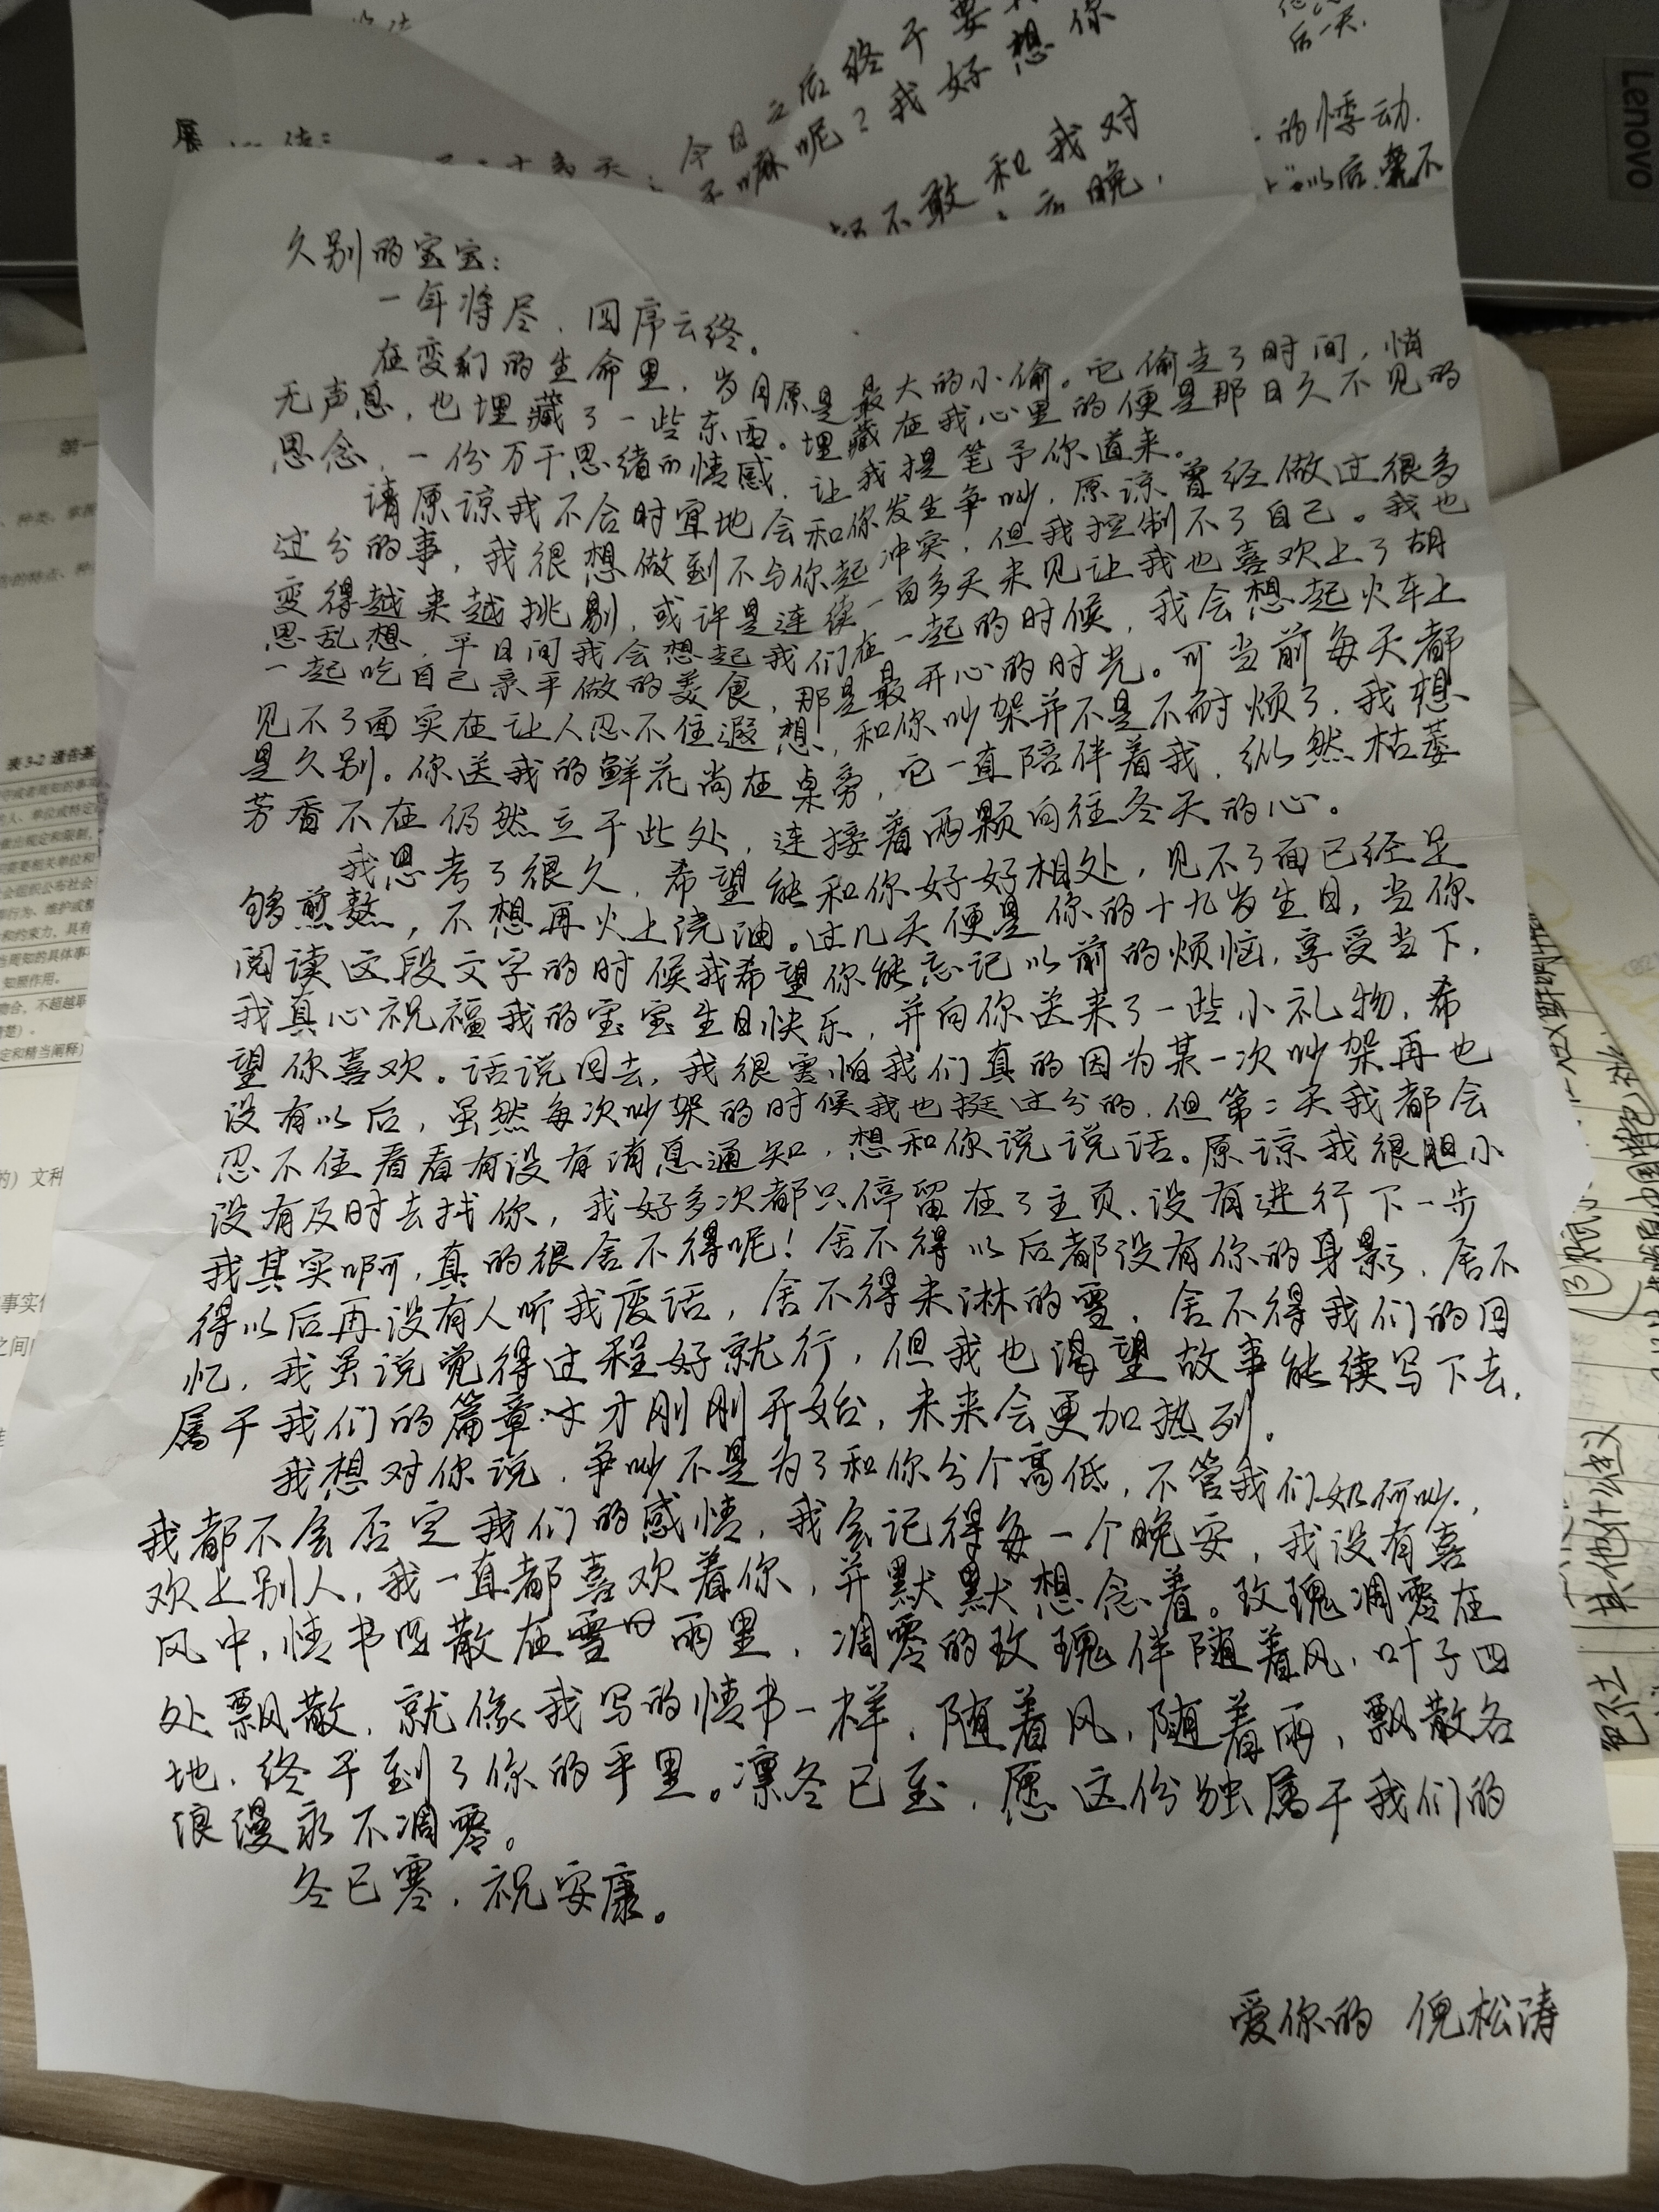 后一天.
今日之后终于要
嘛呢？我好想你
不敢和我对
的悸动.
以后,要不
Lenovo
久别的宝宝：
一年将尽，四序云终。
在变幻的生命里，岁月原是最大的小偷。它偷走了时间，悄
无声息，也埋藏了一些东西。埋藏在我心里的便是那日久不见的
思念，一份万千思绪的情感，让我提笔予你道来。
请原谅我不合时宜地会和你发生争吵，原谅曾经做过很多
过分的事，我很想做到不与你起冲突，但我控制不了自己。我也
变得越来越挑剔，或许是连续一百多天未见让我也喜欢上了胡
思乱想，平日间我会想起我们在一起的时候，我会想起火车上
一起吃自己亲手做的美食，那是最开心的时光。可当前每天都
见不了面实在让人忍不住遐想，和你吵架并不是不耐烦了，我想
是久别。你送我的鲜花尚在桌旁，它一直陪伴着我，纵然枯萎
芳香不在仍然立于此处，连接着两颗向往冬天的心。
我思考了很久，希望能和你好好相处，见不了面已经足
够煎熬，不想再火上浇油。过几天便是你的十九岁生日，当你
阅读这段文字的时候我希望你能忘记以前的烦恼，享受当下，
我真心祝福我的宝宝生日快乐，并向你送来了一些小礼物，希
望你喜欢。话说回去，我很害怕我们真的因为某一次吵架再也
没有以后，虽然每次吵架的时候我也挺过分的，但第二天我都会
忍不住看看有没有消息通知，想和你说说话。原谅我很胆小
没有及时去找你，我好多次都只停留在了主页，没有进行下一步
我其实啊，真的很舍不得呢！舍不得以后都没有你的身影，舍不
得以后再没有人听我废话，舍不得未淋的雪，舍不得我们的回
忆，我虽说觉得过程好就行，但我也渴望故事能续写下去，
属于我们的篇章才刚刚开始，未来会更加热列。
我想对你说，争吵不是为了和你分个高低，不管我们如何吵，
我都不会否定我们的感情，我会记得每一个晚安，我没有喜
欢上别人，我一直都喜欢着你，并默默想念着。玫瑰凋零在
风中，情书吹散在雪雨里，凋零的玫瑰伴随着风，叶子四
处飘散，就像我写的情书一样，随着风，随着雨，飘散各
地，终于到了你的手里。凛冬已至，愿这份独属于我们的
浪漫永不凋零。
冬已寒，祝安康。
爱你的 倪松涛
表3-2 通告基
其他什么值义